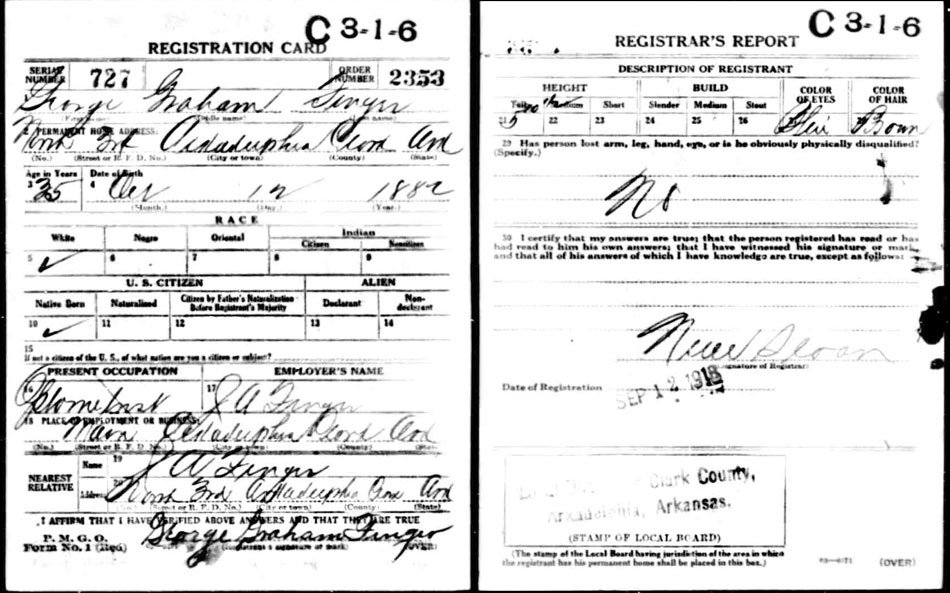 C 3-1-6
REGISTRATION CARD
SERIAL NUMBER 727 ORDER NUMBER 2353
George Graham Finger
(First name) (Middle name) (Last name)
2 PERMANENT HOME ADDRESS:
North 3rd Arkadelphia Clark Ark
(No.) (Street or R. F. D. No.) (City or town) (County) (State)
Age in Years Date of Birth
3 35 4 Oct 12 1882
(Month.) (Day.) (Year.)
RACE
White Negro Oriental Indian
Citizen Noncitizen
5 ✓ 6 7 8 9
U. S. CITIZEN ALIEN
Native Born Naturalized Citizen by Father's Naturalization Before Registrant's Majority Declarant Non-declarant
10 ✓ 11 12 13 14
15
If not a citizen of the U. S., of what nation are you a citizen or subject?
PRESENT OCCUPATION EMPLOYER'S NAME
16 17 J A Finger
18 PLACE OF EMPLOYMENT OR BUSINESS:
Main Arkadelphia Clark Ark
(No.) (Street or R. F. D. No.) (City or town) (County) (State)
NEAREST RELATIVE Name 19 J A Finger
Address 20 North 3rd Arkadelphia Clark Ark
(No.) (Street or R. F. D. No.) (City or town) (County) (State)
I AFFIRM THAT I HAVE VERIFIED ABOVE ANSWERS AND THAT THEY ARE TRUE
P. M. G. O.
Form No. 1 (Red) George Graham Finger
(Registrant's signature or mark) (OVER)
C 3-1-6
REGISTRAR'S REPORT
DESCRIPTION OF REGISTRANT
HEIGHT BUILD COLOR OF EYES COLOR OF HAIR
Tall Medium Short Slender Medium Stout
21 22 23 24 25 26 27 28 Brown
29 Has person lost arm, leg, hand, eye, or is he obviously physically disqualified?
(Specify.)
No
30 I certify that my answers are true; that the person registered has read or has
had read to him his own answers; that I have witnessed his signature or mark
and that all of his answers of which I have knowledge are true, except as follows:
Sloan
(Signature of Registrar)
Date of Registration SEP 12 1918
Clark County,
Arkadelphia, Arkansas.
(STAMP OF LOCAL BOARD)
(The stamp of the Local Board having jurisdiction of the area in which
the registrant has his permanent home shall be placed in this box.)
(OVER)